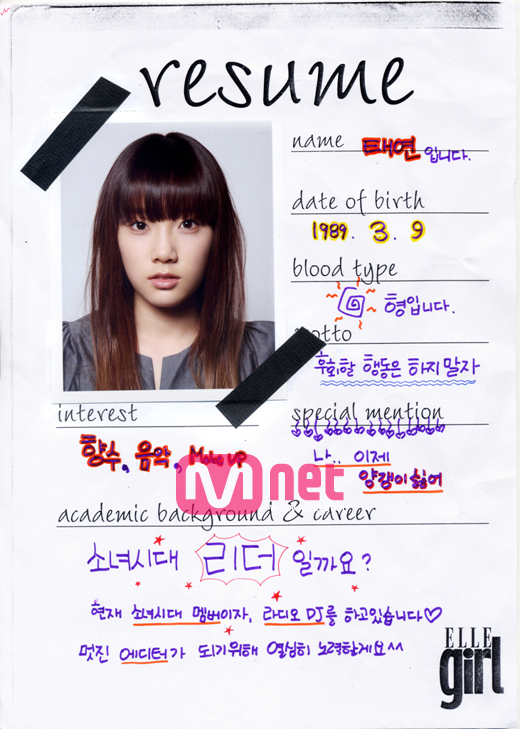 resume
name 태연 입니다.
date of birth
1989. 3. 9
blood type
형입니다.
motto
후회할 행동은 하지말자
interest
향수, 음악, Make up
special mention
나.. 이제
양갱이 싫어
Mnet
academic background & career
소녀시대 리더 일까요?
현재 소녀시대 멤버이자, 라디오 DJ를 하고있습니다♡
멋진 에디터가 되기위해 열심히 노력할게요^^
ELLE
girl